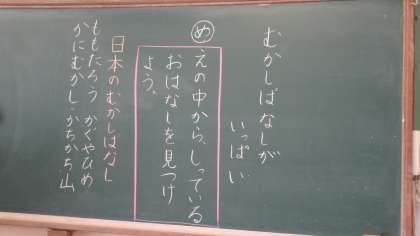 むかしばなしが
いっぱい
め
えの中から、しっている
おはなしを見つけ
よう。
日本のむかしばなし
ももたろう かぐやひめ
かにむかし・かちかち山